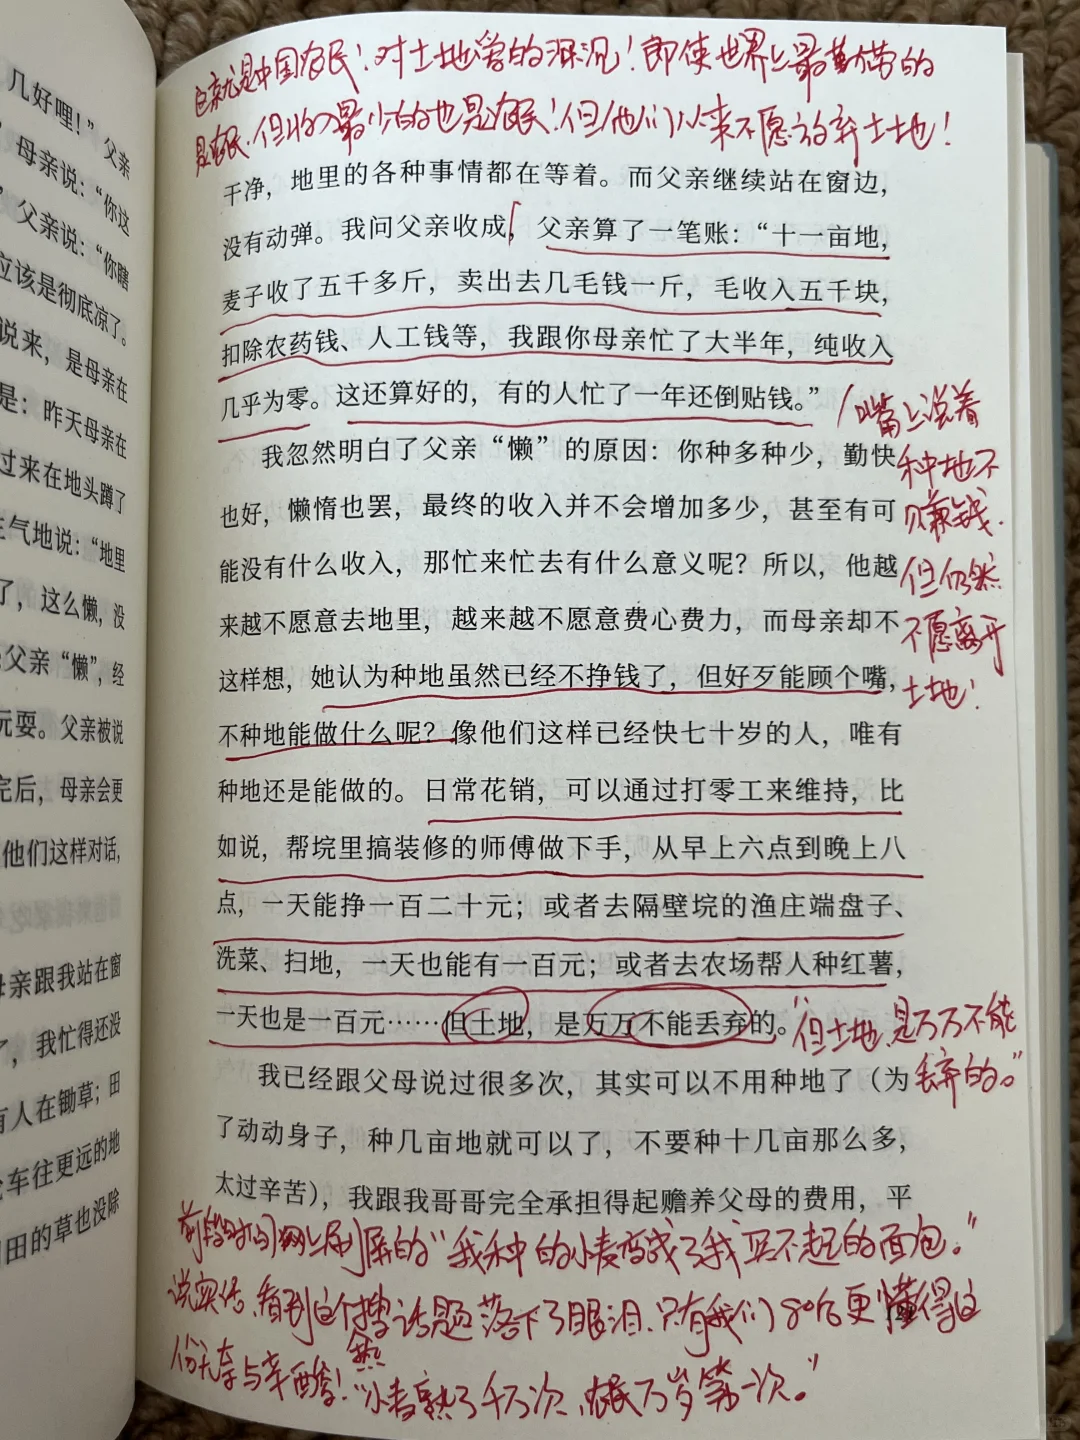 几好哩！”父亲
母亲说：“你这
父亲说：“你瞎
应该是彻底凉了。
说来，是母亲在
是：昨天母亲在
过来在地头蹲了
生气地说：“地里
了，这么懒，没
父亲“懒”，经
元耍。父亲被说
完后，母亲会更
他们这样对话，
母亲跟我站在窗
了，我忙得还没
有人在锄草；田
车往更远的地
田的草也没除
这就是中国农民！对土地爱的深沉！即使世界上最勤劳的
是农民，但收入最少的也是农民！但他们从来不愿放弃土地！
干净，地里的各种事情都在等着。而父亲继续站在窗边，
没有动弹。我问父亲收成，父亲算了一笔账：“十一亩地，
麦子收了五千多斤，卖出去几毛钱一斤，毛收入五千块，
扣除农药钱、人工钱等，我跟你母亲忙了大半年，纯收入
几乎为零。这还算好的，有的人忙了一年还倒贴钱。”
我忽然明白了父亲“懒”的原因：你种多种少，勤快
也好，懒惰也罢，最终的收入并不会增加多少，甚至有可
能没有什么收入，那忙来忙去有什么意义呢？所以，他越
来越不愿意去地里，越来越不愿意费心费力，而母亲却不
这样想，她认为种地虽然已经不挣钱了，但好歹能顾个嘴，
不种地能做什么呢？像他们这样已经快七十岁的人，唯有
种地还是能做的。日常花销，可以通过打零工来维持，比
如说，帮垸里搞装修的师傅做下手，从早上六点到晚上八
点，一天能挣一百二十元；或者去隔壁垸的渔庄端盘子、
洗菜、扫地，一天也能有一百元；或者去农场帮人种红薯，
一天也是一百元……但土地，是万万不能丢弃的。
我已经跟父母说过很多次，其实可以不用种地了（为
了动动身子，种几亩地就可以了，不要种十几亩那么多，
太过辛苦），我跟我哥哥完全承担得起赡养父母的费用，平
嘴上说着
种地不
赚钱，
但仍然
不愿离开
土地！
“但土地，是万万不能
丢弃的。”
前段时间网上刷屏的“我种的小麦变成了我买不起的面包。”
说实话，看到这个话题落下了眼泪，只有我们80后更懂得这
份无奈与辛酸！“小麦熟了千万次，农民万岁第一次。”